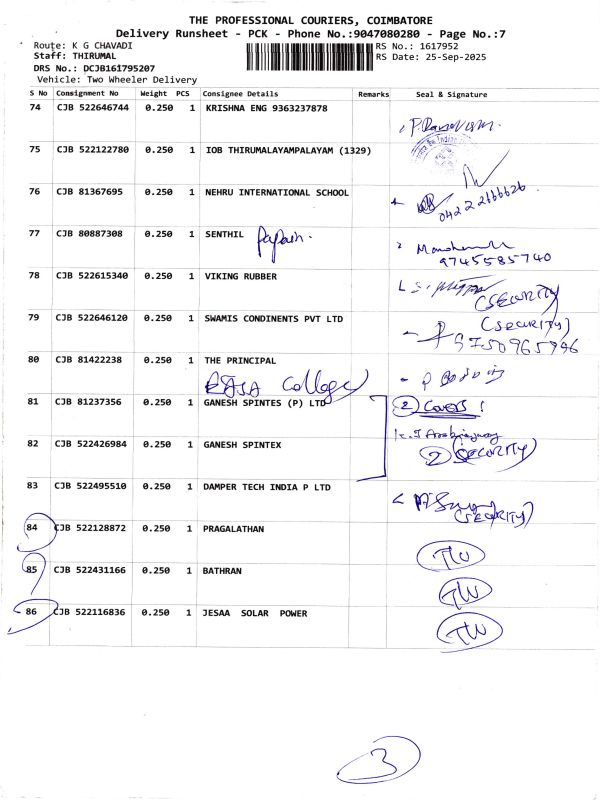 THE PROFESSIONAL COURIERS, COIMBATORE
Delivery Runsheet - PCK - Phone No.:9047080280 - Page No.:7
Route: K G CHAVADI RS No.: 1617952
Staff: THIRUMAL RS Date: 25-Sep-2025
DRS No.: DCJB161795207
Vehicle: Two Wheeler Delivery
S No Consignment No Weight PCS Consignee Details Remarks Seal & Signature
74 CJB 522646744 0.250 1 KRISHNA ENG 9363237878
75 CJB 522122780 0.250 1 IOB THIRUMALAYAMPALAYAM (1329)
76 CJB 81367695 0.250 1 NEHRU INTERNATIONAL SCHOOL
0422 2666626
77 CJB 80887308 0.250 1 SENTHIL
9745585740
78 CJB 522615340 0.250 1 VIKING RUBBER
(SECURITY)
79 CJB 522646120 0.250 1 SWAMIS CONDINENTS PVT LTD
(SECURITY)
80 CJB 81422238 0.250 1 THE PRINCIPAL
College
81 CJB 81237356 0.250 1 GANESH SPINTES (P) LTD
2 COVERS
82 CJB 522426984 0.250 1 GANESH SPINTEX
2 (SECURITY)
83 CJB 522495510 0.250 1 DAMPER TECH INDIA P LTD
(SECURITY)
84 CJB 522128872 0.250 1 PRAGALATHAN
85 CJB 522431166 0.250 1 BATHRAN
86 CJB 522116836 0.250 1 JESAA SOLAR POWER
3